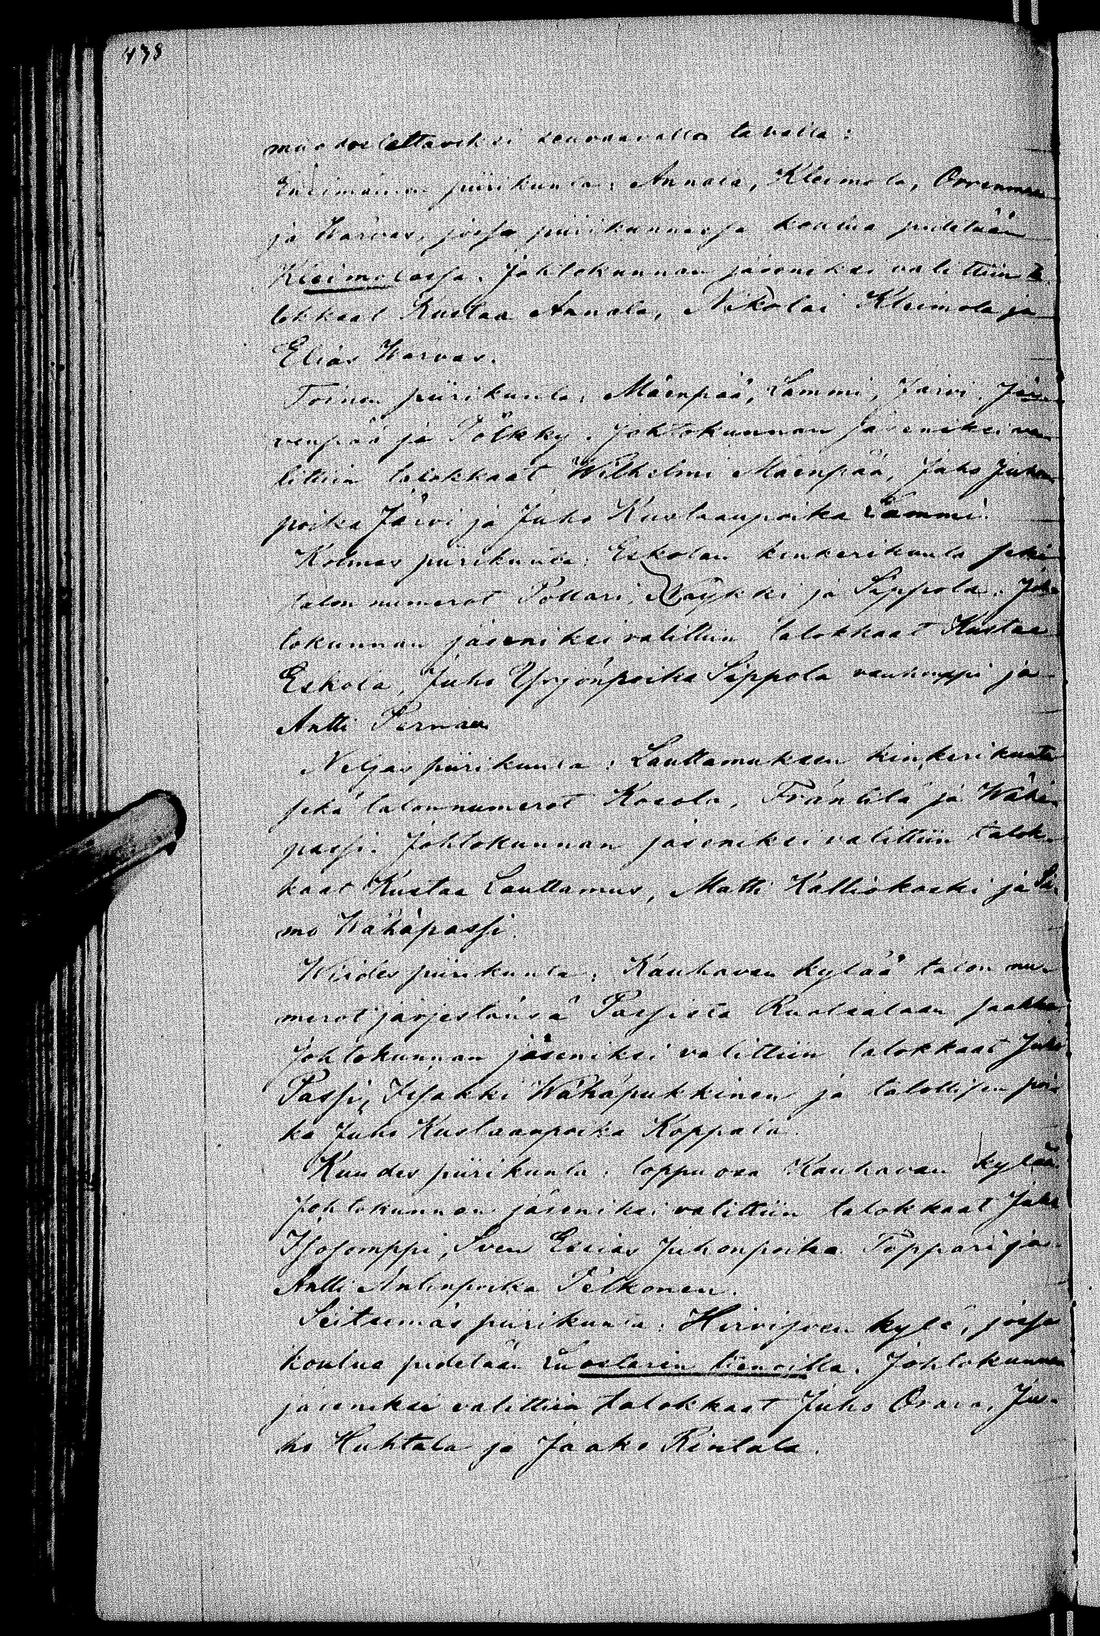 438
muodostettaviksi seuraavalla tavalla:
Ensimäinen piirikunta: Annala, Kleimola, Orrenmaa
ja Warvas, jossa piirikunnassa koulua pidetään
Kleimolassa. Johtokunnan jäseniksi valittiin ta-
lokkaat Kustaa Annala, Nikolai Kleimola ja
Elias Warvas.
Toinen piirikunta: Mäenpää, Lammi, Järvi, Jär-
venpää ja Pölkky. Johtokunnan jäseniksi va-
littiin talokkaat Wilhelmi Mäenpää, Juho Juhon
poika Järvi ja Juho Kustaanpoika Lammi.
Kolmas piirikunta: Eskolan kinkerikunta sekä
talon numerot Pottari, Näykki ja Sippola. Joh-
tokunnan jäseniksi valittiin talokkaat Kustaa
Eskola, Juho Yrjönpoika Sippola vanhempi ja
Antti Pernaa
Neljäs piirikunta: Lauttamuksen kinkerikunta
sekä talonnumerot Kosola, Franttilä ja Wähä-
passi. Johtokunnan jäseniksi valittiin talok-
kaat Kustaa Lauttamus, Matti Kalliokoski ja Si-
mo Wähäpassi.
Wiides piirikunta: Kauhavan kylää talon nu-
merot järjestänsä Passista Ruotsalaan saakka
Johtokunnan jäseniksi valittiin talokkaat Juho
Passi, Iisakki Wähäpukkinen ja talollisen poi-
ka Juho Kustaanpoika Koppala.
Kuudes piirikunta: loppuosa Kauhavan kylää
Johtokunnan jäseniksi valittiin talokkaat Juho
Isosomppi, Sven Elias Juhonpoika Töppäri ja
Antti Antinpoika Pelkonen.
Seitsemäs piirikunta: Hirvijoen kylä, jossa
koulua pidetään Luostarin tienoilla. Johtokunnan
jäseniksi valittiin talokkaat Juho Orava, Ju-
ho Huhtala ja Jaako Rintala.